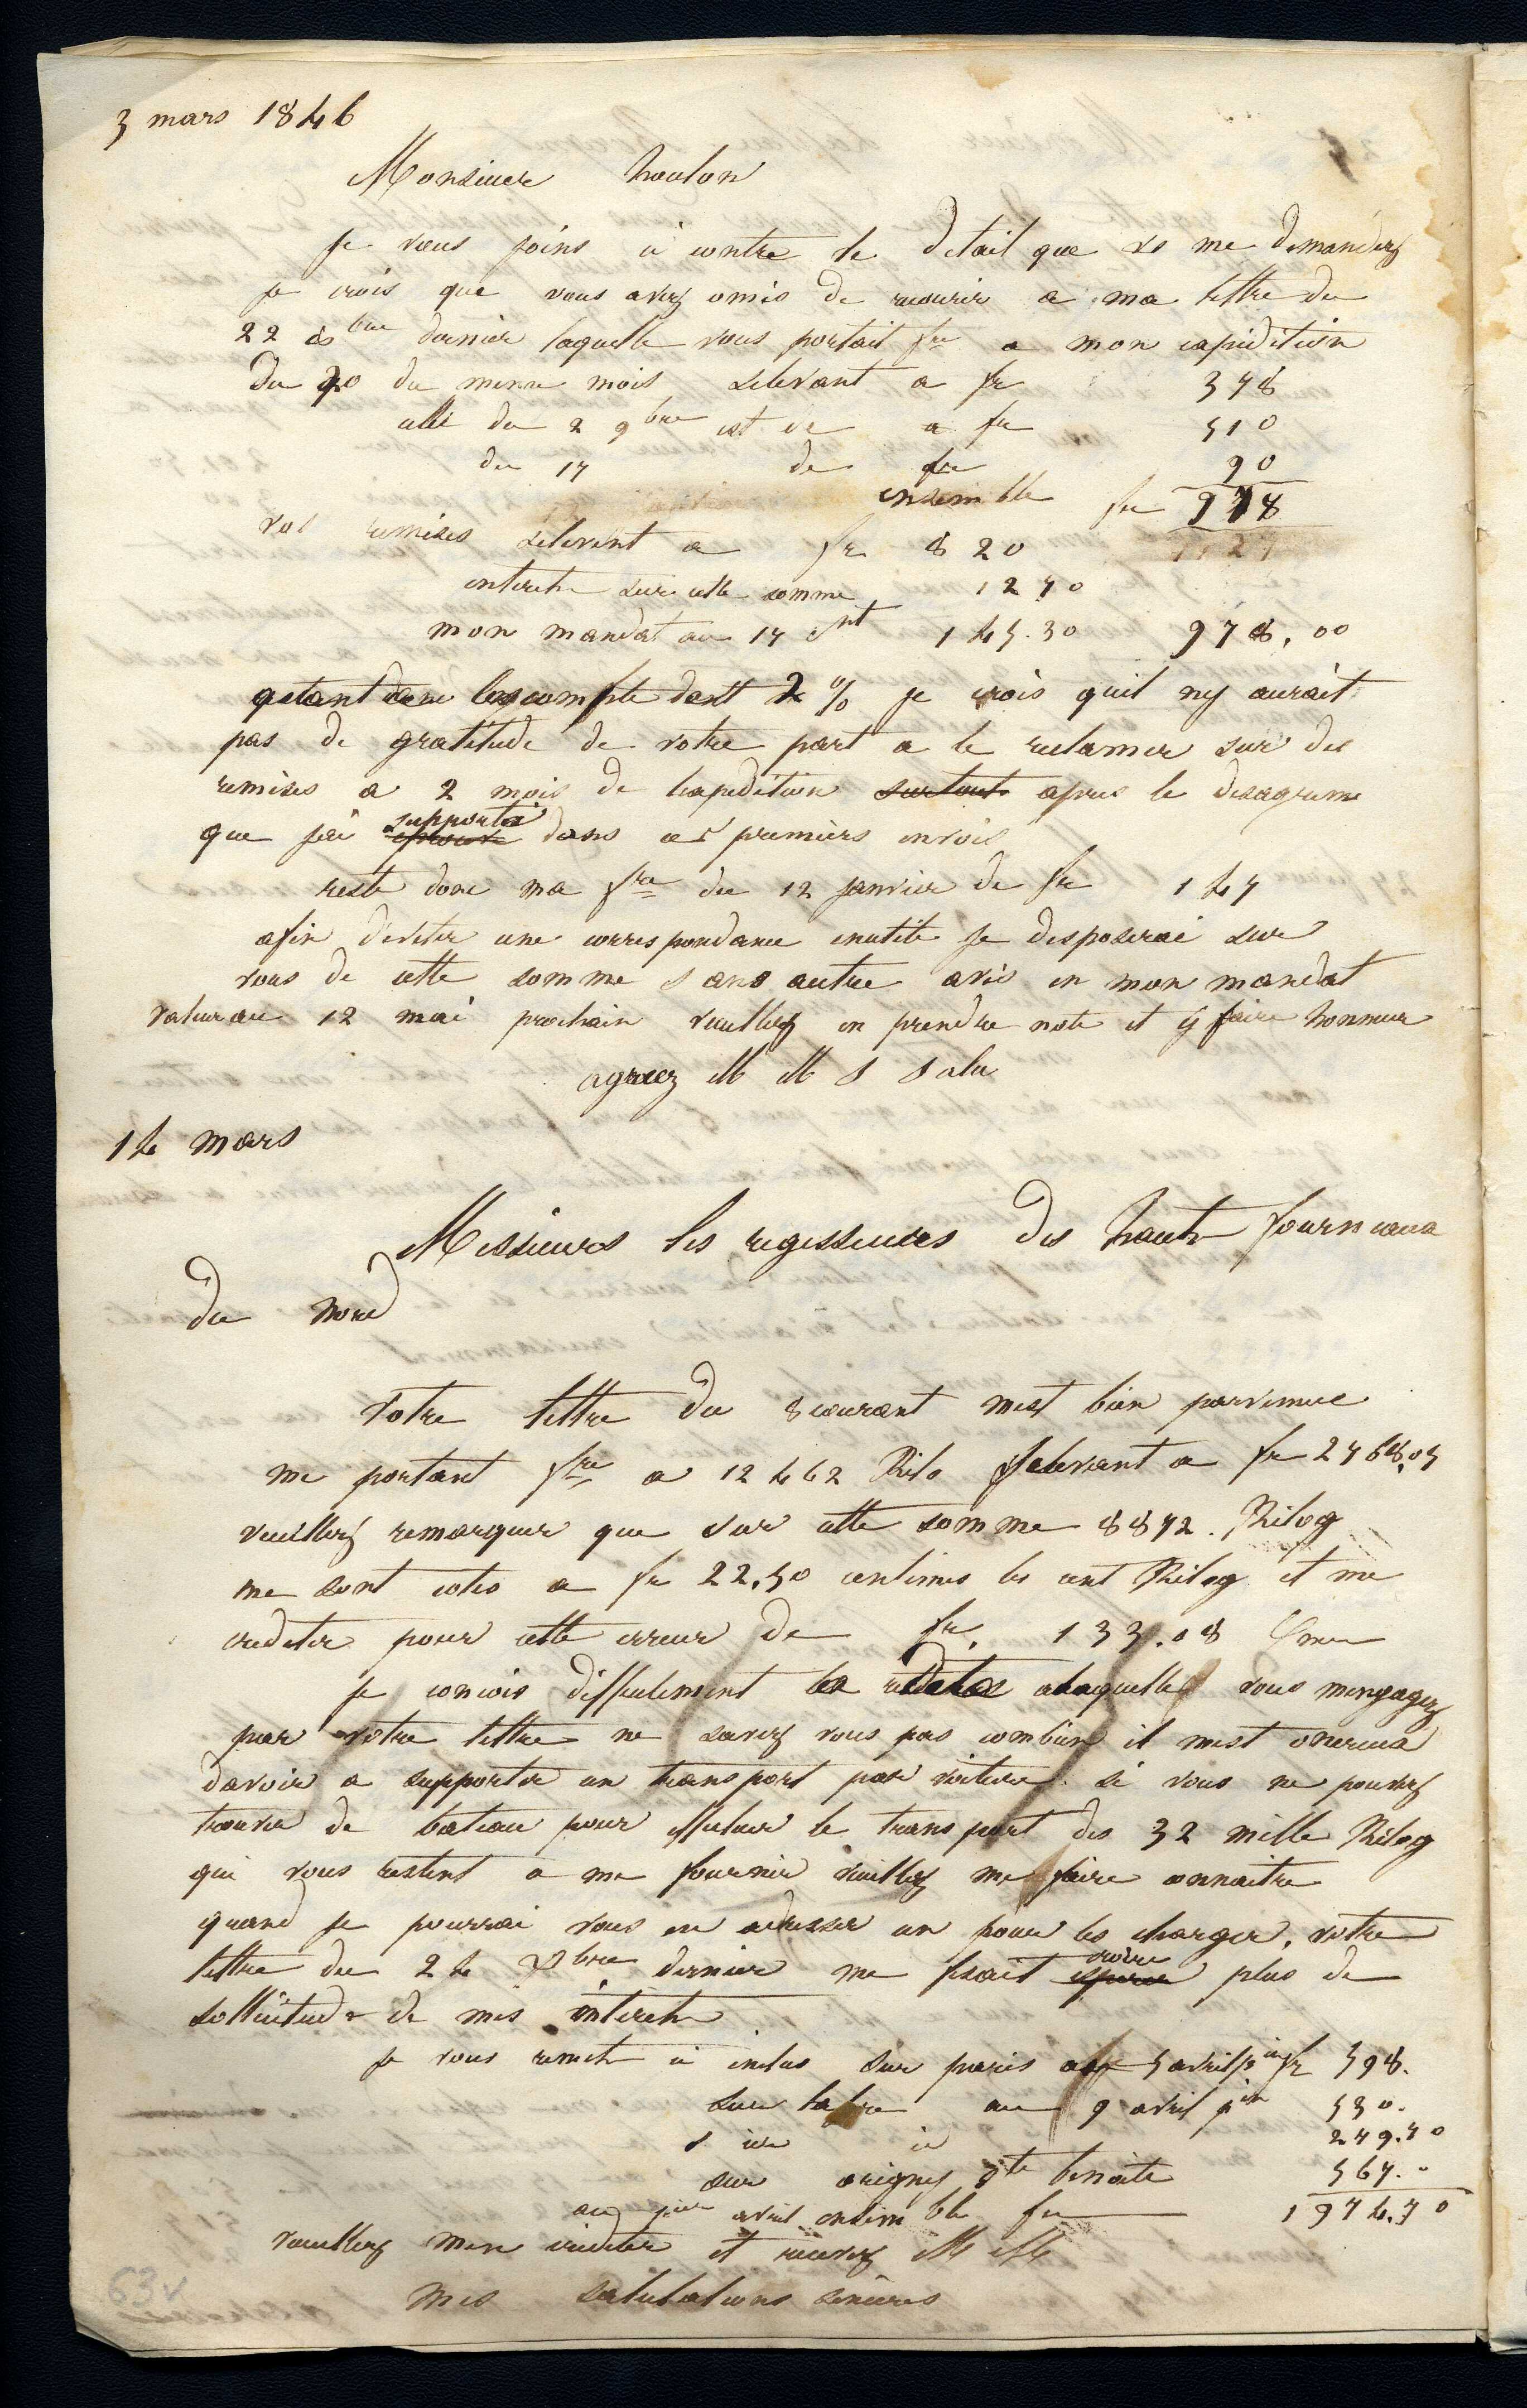 3 mars 1846
Monsieur houlon
je vous joins ci contre le detail que vs me demandez
je crois que vous avez omis de recourir a ma lettre du
22 8bre dernier laquelle vous portait fre a mon expedition
du 20 du meme mois selevant a fr 378
celle du 2 9bre est de a fr 510
du 17 de fr 90
ensemble fr 978
vos remises selevent a fr 820
interets sur cette somme 12 70
mon mandat au 17 ct 145.30 978.00
quant lescompte dont 2 % je crois quil ny aurait
pas de gratitude de votre part a le reclamer sur des
remises a 2 mois de lexpedition surtout apres le desagreme
que jai supporté dans ces premiers envois
reste donc ma fre du 12 janvier de fr 147
afin deviter une correspondance inutile je disposerai sur
vous de cette somme sans autre avis en mon mandat
valeur au 12 mai prochain veuillez en prendre note et y faire honneur
agreez M M s salu
14 mars
Messieurs les regisseurs des hauts fourneaux
du nord
Votre lettre du 8 courant mest bien parvenue
me portant fre a 12462 Kilo selevant a fr 2768,05
veuillez remarquer que sur cette somme 8872. Kilog
me sont cotes a fr 22,50 centimes les cent Kilog et me
crediter pour cette erreur de fr. 133.08
je concois difficilement alaquelle vous mengagez
par votre lettre ne savez vous pas combien il mest onereux
davoir a supporter un transport par voiture. si vous ne pouvez
trouver de bateau pour effectuer le transport des 32 mille Kilog
qui vous restent a me fournir veuillez me faire connaitre
quand je pourrai vous en adresser un pour les charger, votre
lettre du 24 Xbre dernier me fesait croire plus de
sollicitude de mes interets
je vous remets ci inclus sur paris au 5 avril pin fr 598.
sur lafere au 9 avril pin 530.
s id id 249.70
sur origny ste benoite 567.
avril ensemble fr 1974.70
veuillez men crediter et recevez M M
mes salutations sinceres
63v